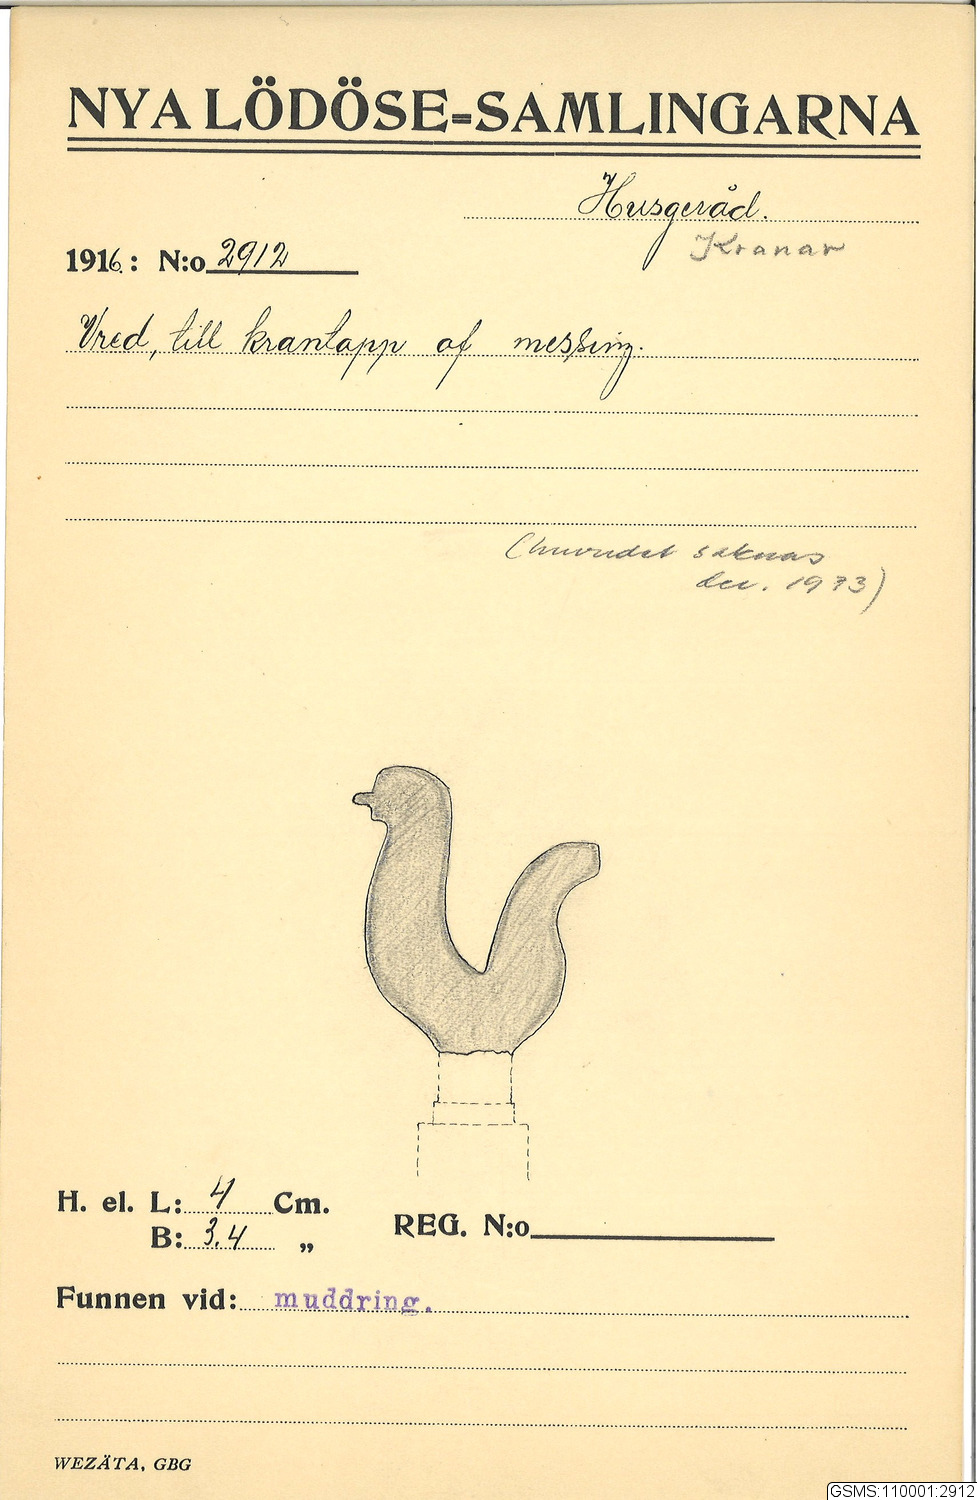 NYA LÖDÖSE-SAMLINGARNA
Husgeråd.
Kranar
1916: N:o 2912
Vred, till krantapp af messing.
(huvudet saknas
dec. 1973)
H. el. L: 4 Cm.
B: 3.4 „
REG. N:o
Funnen vid: muddring.
WEZÄTA, GBG
GSMS:110001:2912